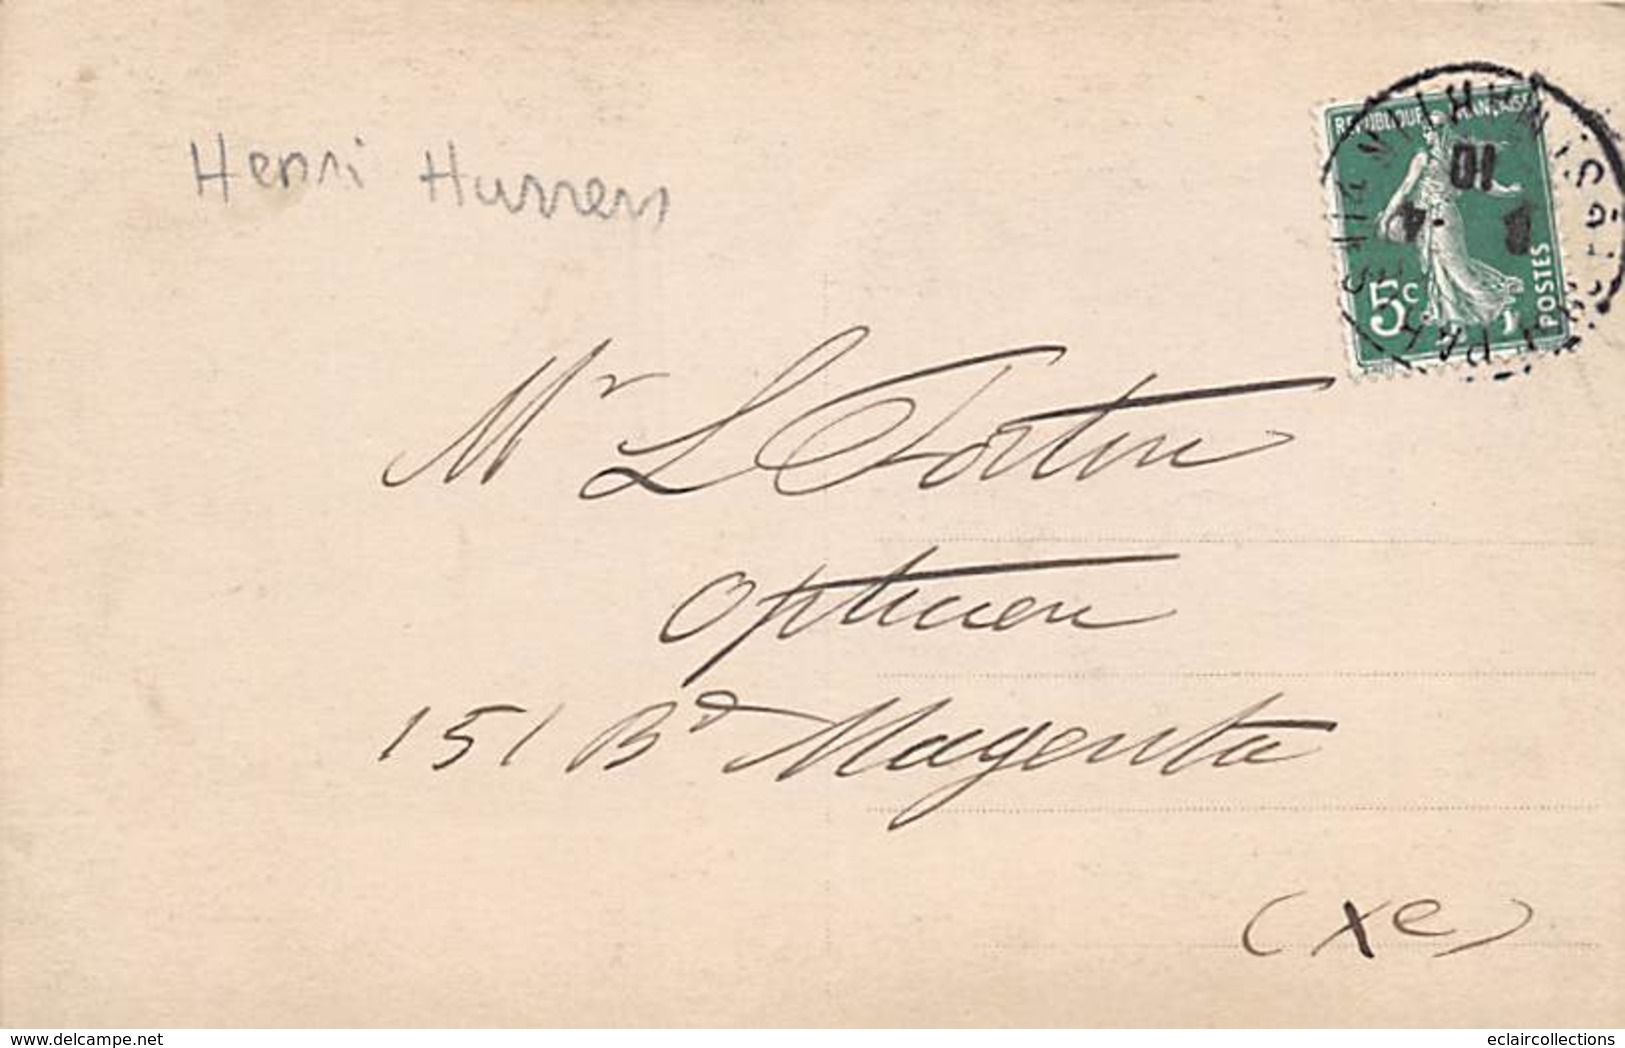 Henri Hurrers
REPUBLIQUE FRANÇAISE
10
5c
POSTES
Mr L Fortin
opticien
151 Bd Magenta
(Xe)
www.delcampe.net
eclaircollections